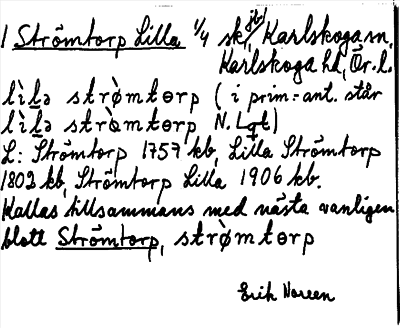 1 Strömtorp Lilla 1/4 sk jb, Karlskoga sn,
Karlskoga hd, Ör. l.
lìl̲ə strømtorp ( i prim.-ant. står
lìl̲ə strømtorp N. Lgt)
L: Strömtorp 1757 kb, Lilla Strömtorp
1802 kb, Strömtorp Lilla 1906 kb.
Kallas tillsammans med nästa vanligen
blott Strömtorp, strø̀mtɵrp
Erik Noreen